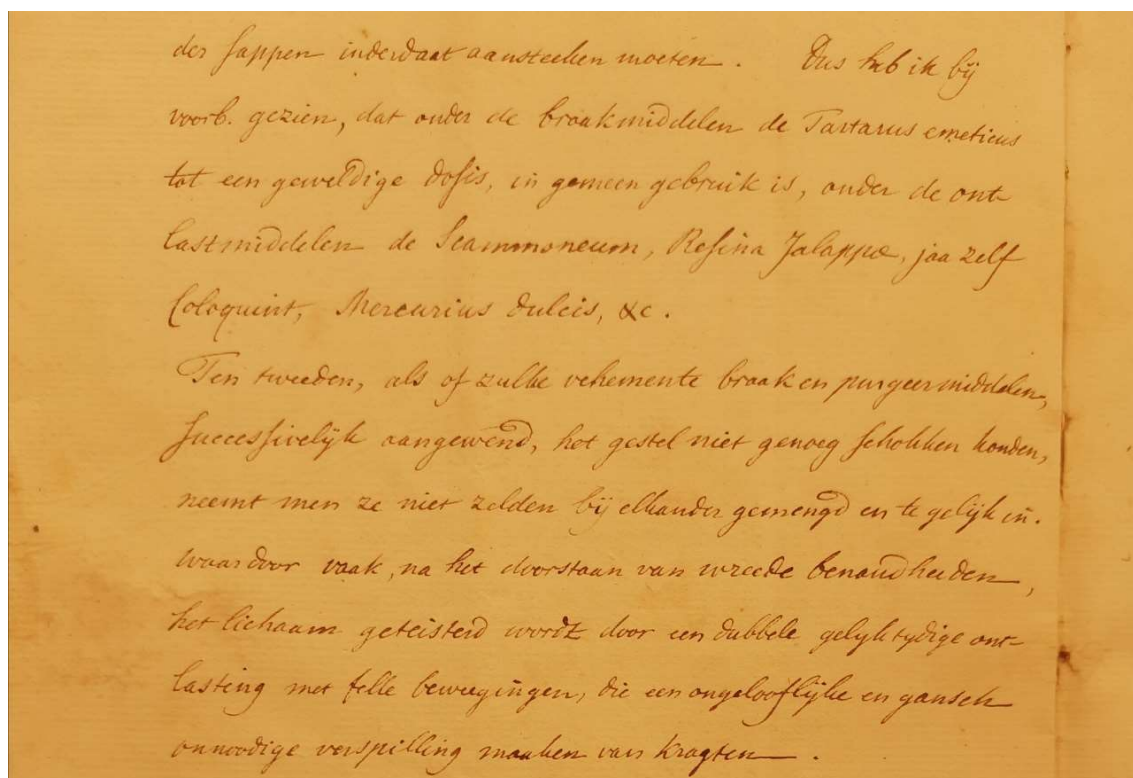 der sappen inderdaat aansteeken moeten. Dus heb ik bij
voorb. gezien, dat onder de braakmiddelen de Tartarus emeticus
tot een geweldige dosis, in gemeen gebruik is, onder de ont
lastmiddelen de Scammoneum, Resina Jalappæ, jaa zelf
Coloquint, Mercurius dulcis, &c.
Ten tweeden, als of zulke vehemente braak en purgeermiddelen,
successivelijk aangewend, het gestel niet genoeg schokken konden,
neemt men ze niet zelden bij elkander gemengd en te gelijk in.
waardoor vaak, na het doorstaan van wreede benaudheeden,
het lichaam geteisterd wordt door een dubbele gelyktydige ont-
lasting met felle beweegingen, die een ongelooflijke en gansch
onnoodige verspilling maaken van kragten.